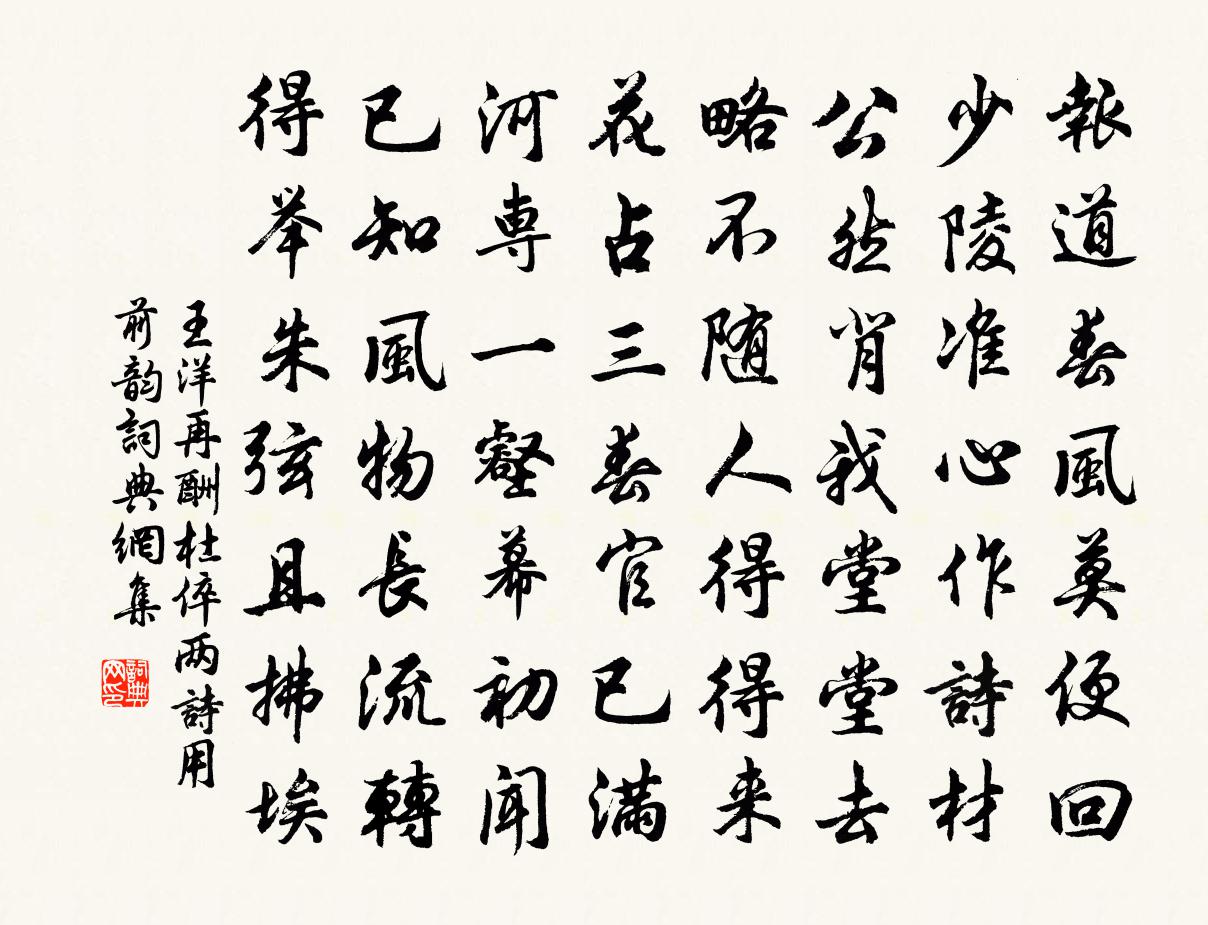 報道春風莫便回
少陵准心作詩材
公然肖我堂堂去
略不随人得得来
花占三春官已満
河専一壑幕初闻
已知風物長流轉
得举朱弦且拂埃
王洋再酬杜倅两詩用
前韵詞典網集
詞典网